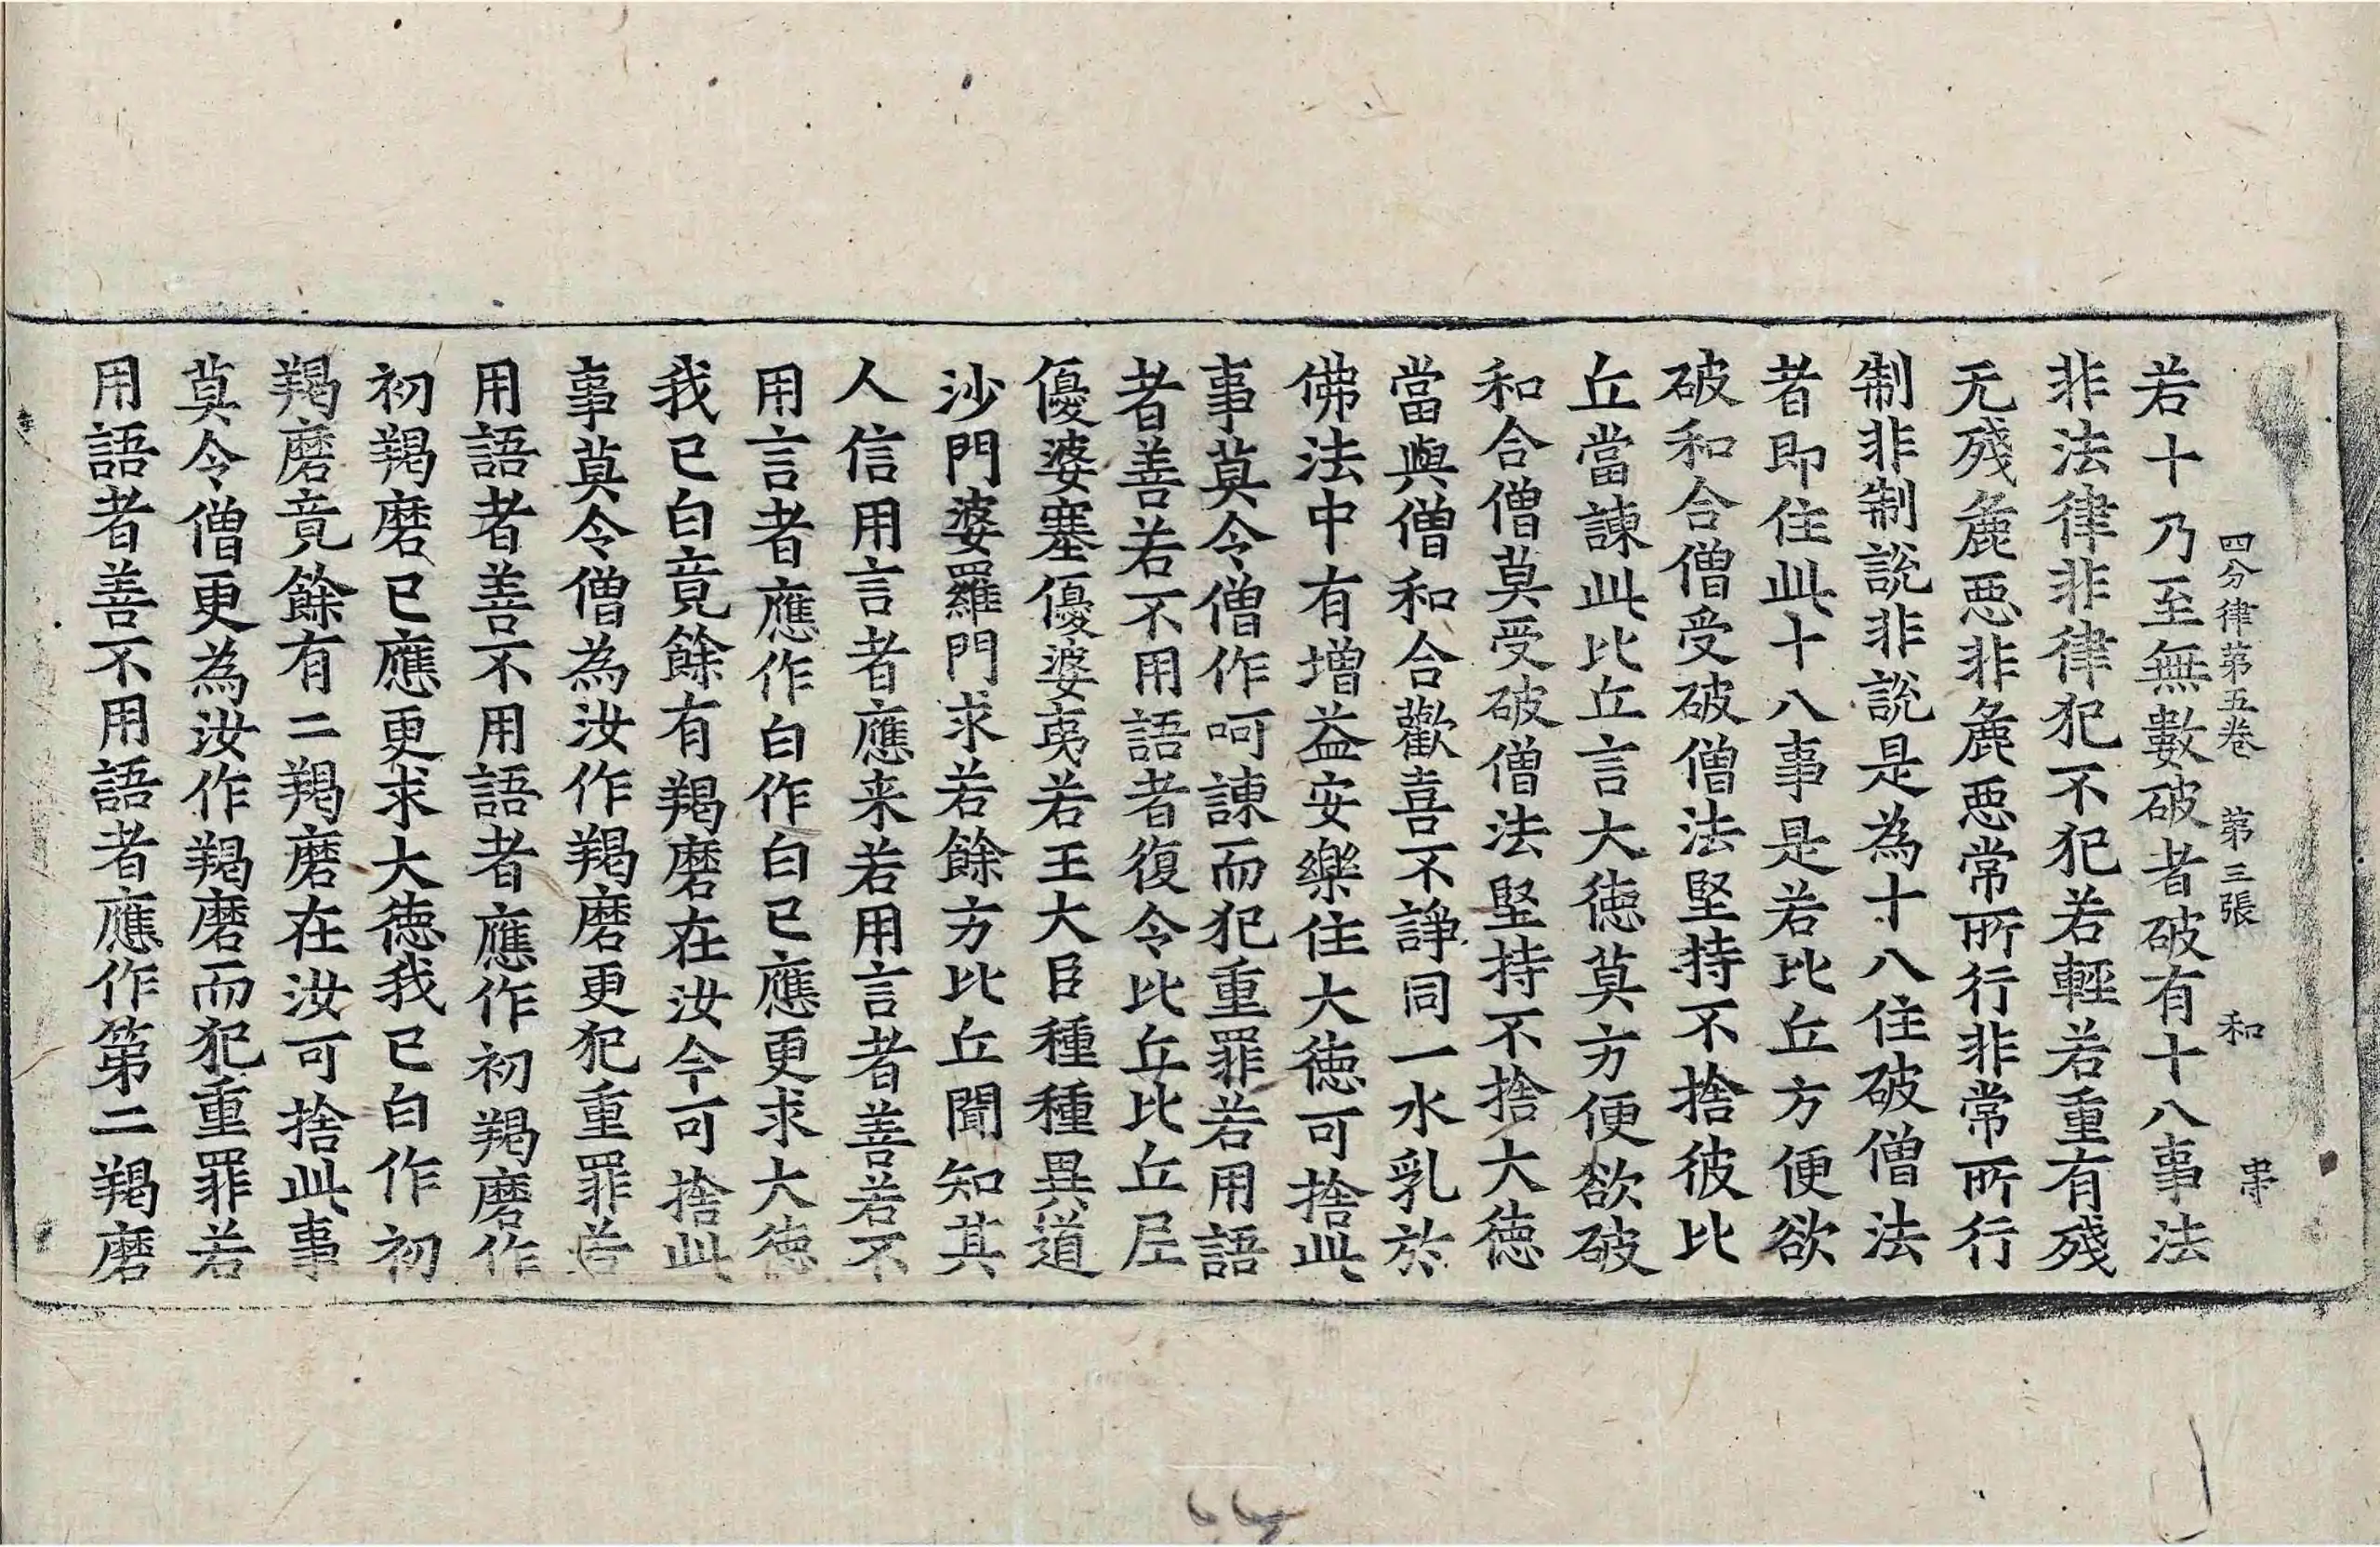 四分律第五卷 第三張 和
若十乃至無數破者破有十八事法
非法律非律犯不犯若輕若重有殘
无殘麁惡非麁惡常所行非常所行
制非制說非說是為十八住破僧法
者即住此十八事是若比丘方便欲
破和合僧受破僧法堅持不捨彼比
丘當諫此比丘言大德莫方便欲破
和合僧莫受破僧法堅持不捨大德
當與僧和合歡喜不諍同一水乳於
佛法中有增益安樂住大德可捨此
事莫令僧作呵諫而犯重罪若用語
者善若不用語者復令比丘比丘尼
優婆塞優婆夷若王大臣種種異道
沙門婆羅門求若餘方比丘聞知其
人信用言者應来若用言者善若不
用言者應作白作白已應更求大德
我已白竟餘有羯磨在汝今可捨此
事莫令僧為汝作羯磨更犯重罪若
用語者善不用語者應作初羯磨作
初羯磨已應更求大德我已白作初
羯磨竟餘有二羯磨在汝可捨此事
莫令僧更為汝作羯磨而犯重罪若
用語者善不用語者應作第二羯磨